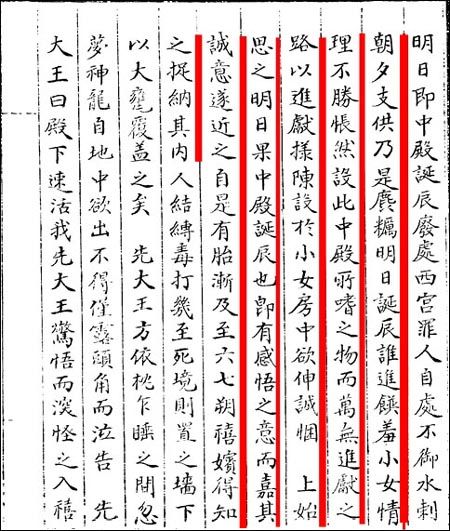 明日即中殿誕辰廢處西宮罪人自處不御水刺
朝夕支供乃是麁糲明日誕辰誰進饌羞小女情
理不勝悵然設此中殿所嗜之物而萬無進獻之
路以進獻樣陳設於小女房中欲伸誠悃 上始
思之明日果中殿誕辰也卽有感悟之意而嘉其
誠意遂近之自是有胎漸及至六七朔禧嬪得知
之捉納其內人結縛毒打幾至死境則置之墻下
以大甕覆盖之矣 先大王方依枕乍睡之間忽
夢神龍自地中欲出不得僅露頭角而泣告 先
大王曰殿下速活我先大王驚悟而深怪之入禧